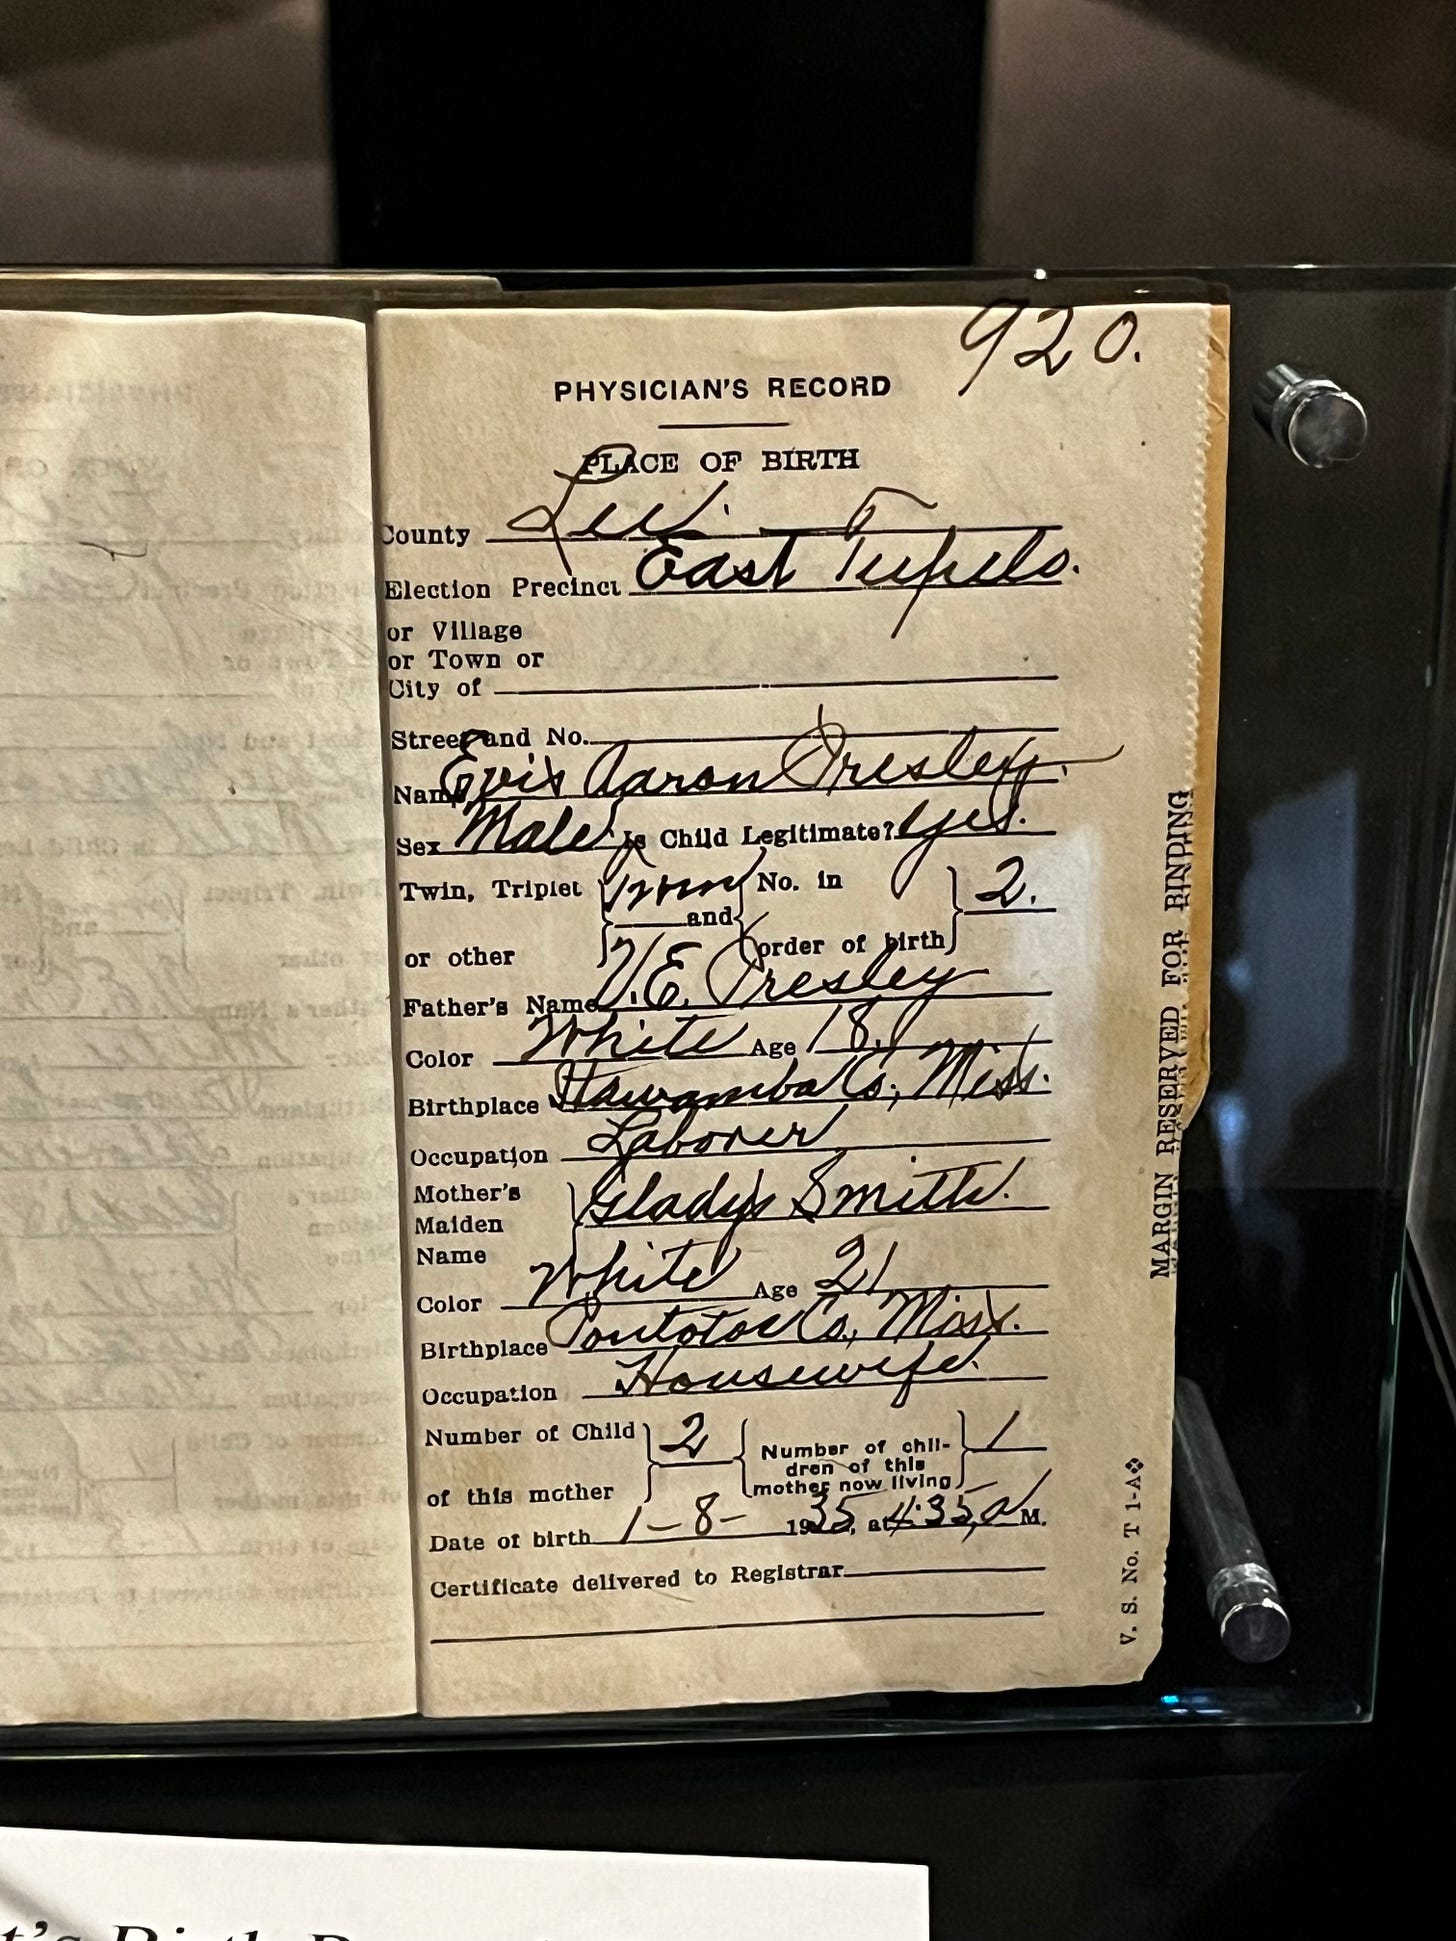 920.
PHYSICIAN'S RECORD
PLACE OF BIRTH
County Lee.
Election Precinct East Tupelo.
or Village
or Town or
City of
Street and No.
Name Evis Aaron Presley.
Sex Male Is Child Legitimate? Yes.
Twin, Triplet Twin No. in 2.
and
or other order of birth
Father's Name V.E. Presley
Color White Age 18.
Birthplace Itawamba Co., Miss.
Occupation Laborer
Mother's Gladys Smith.
Maiden
Name
Color White Age 21
Birthplace Pontotoc Co., Miss.
Occupation Housewife.
Number of Child 2 Number of chil- 1
dren of this
of this mother mother now living
Date of birth 1-8- 1935, at 4:35, a M.
Certificate delivered to Registrar
MARGIN RESERVED FOR BINDING
V. S. No. T 1-A
t's Birth